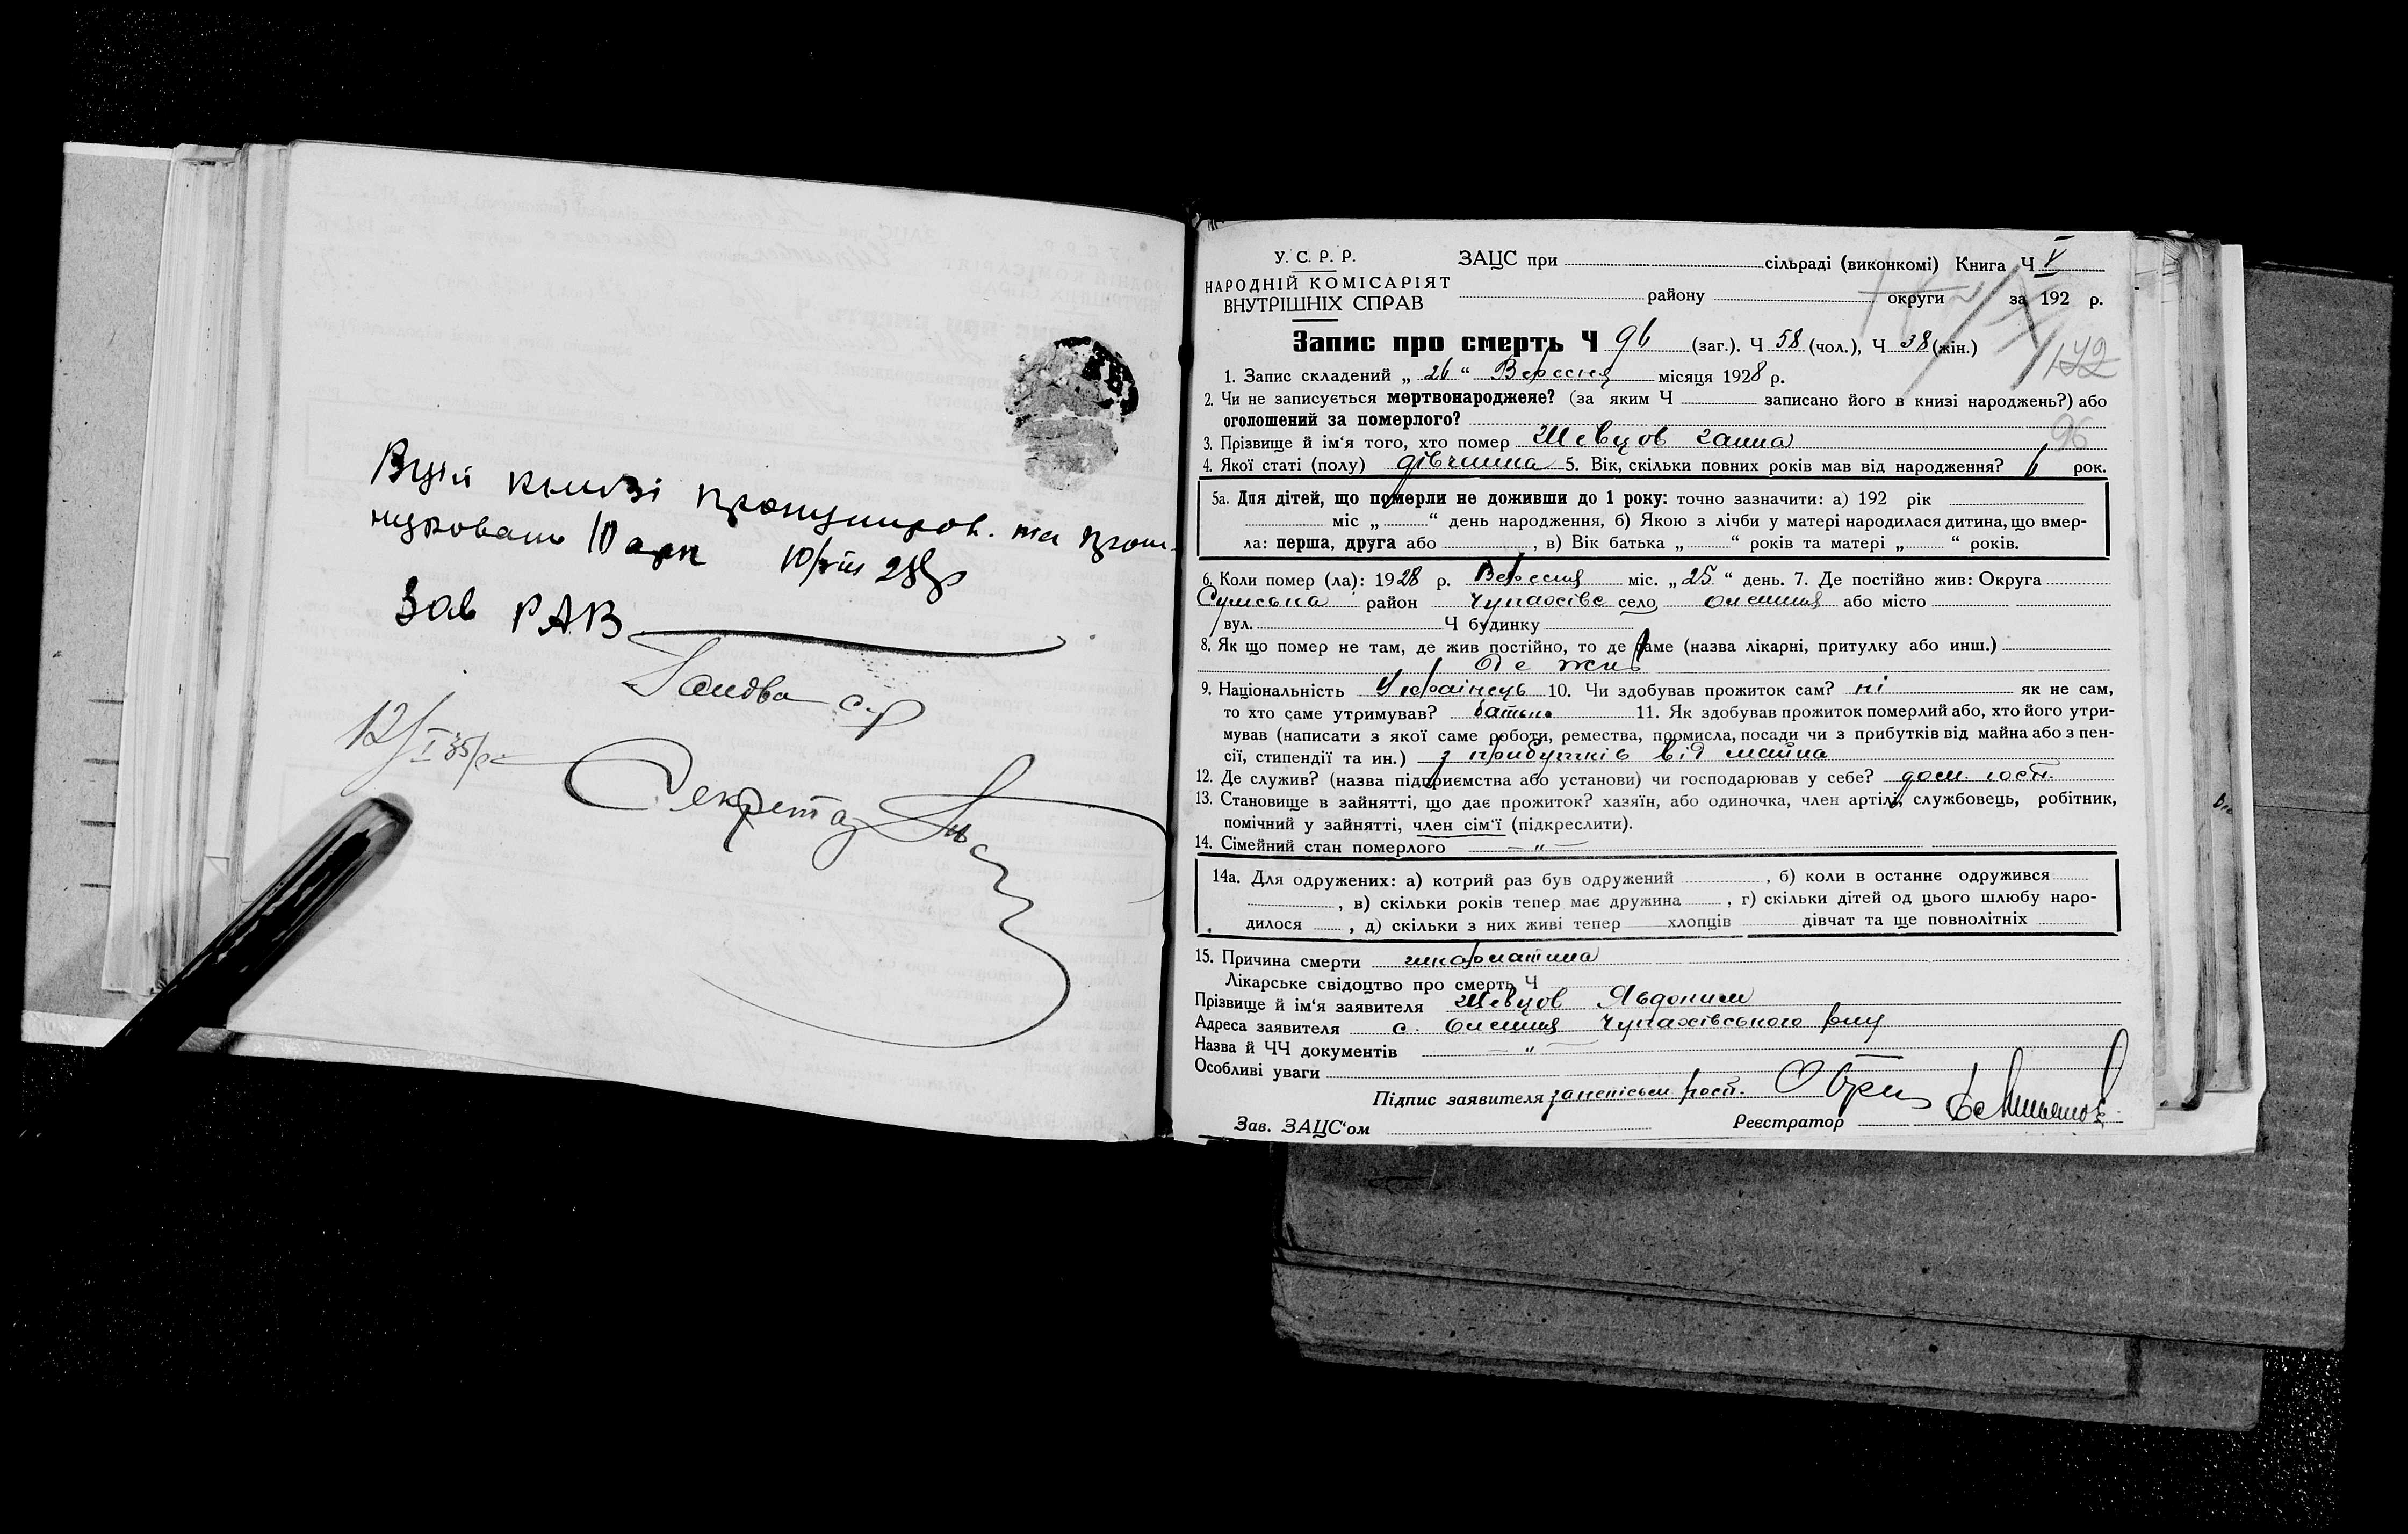 Вцій книзі пронумеров. та прош-
нуровано 10 арк 10/VIII 28р
Зав РАВ
12/I 35р
Секретар
У. С. Р. Р.
НАРОДНІЙ КОМІСАРІЯТ
ВНУТРІШНІХ СПРАВ
ЗАЦС при сільраді (виконкомі) Книга Ч V
району округи за 192 р.
172
Запис про смерть Ч 96 (заг.). Ч 58 (чол.), Ч 38 (жін.)
1. Запис складений „ 26 “ Вересня місяця 1928 р.
2. Чи не записується мертвонароджене? (за яким Ч записано його в книзі народжень?) або
оголошений за померлого?
96
3. Прізвище й ім‘я того, хто помер Шевцов Ганна
4. Якої статі (полу) дівчина 5. Вік, скільки повних років мав від народження? 6 рок.
5а. Для дітей, що померли не доживши до 1 року: точно зазначити: а) 192 рік
міс „ “ день народження, б) Якою з лічби у матері народилася дитина, що вмер-
ла: перша, друга або , в) Вік батька „ “ років та матері „ “ років.
6. Коли помер (ла): 1928 р. Вересня міс. „25“ день. 7. Де постійно жив: Округа
Сумська район Чупахівс село Олешня або місто
вул. Ч будинку
8. Як що помер не там, де жив постійно, то де саме (назва лікарні, притулку або инш.)
Де жив
9. Національність Українець 10. Чи здобував прожиток сам? ні як не сам,
то хто саме утримував? батько 11. Як здобував прожиток померлий або, хто його утри-
мував (написати з якої саме роботи, ремества, промисла, посади чи з прибутків від майна або з пен-
сії, стипендії та ин.) з прибутків від майна
12. Де служив? (назва підприємства або установи) чи господарював у себе? дом. госп.
13. Становище в зайнятті, що дає прожиток? хазяїн, або одиночка, член артілі, службовець, робітник,
помічний у зайнятті, член сім‘ї (підкреслити).
14. Сімейний стан померлого — „ —
14а. Для одружених: а) котрий раз був одружений , б) коли в останнє одружився
, в) скільки років тепер має дружина , г) скільки дітей од цього шлюбу наро-
дилося , д) скільки з них живі тепер хлопців дівчат та ще повнолітніх
15. Причина смерти шкарлатина
Лікарське свідоцтво про смерть Ч
Прізвище й ім‘я заявителя Шевцов Явдоким
Адреса заявителя с. Олешня Чупахівського р-ну
Назва й ЧЧ документів — „ —
Особливі уваги
Підпис заявителя
Зав. ЗАЦС‘ом Реєстратор